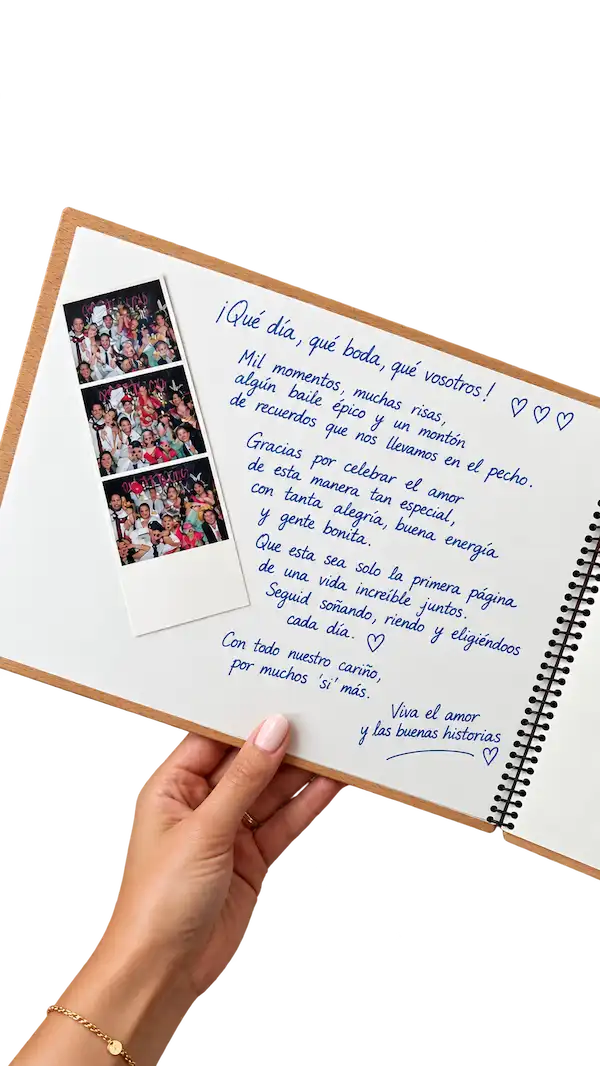 ¡Qué día, qué boda, qué vosotros!
Mil momentos, muchas risas,
algún baile épico y un montón
de recuerdos que nos llevamos en el pecho.
Gracias por celebrar el amor
de esta manera tan especial,
con tanta alegría, buena energía
y gente bonita.
Que esta sea solo la primera página
de una vida increíble juntos.
Seguid soñando, riendo y eligiéndoos
cada día.
Con todo nuestro cariño,
por muchos 'si' más.
Viva el amor
y las buenas historias